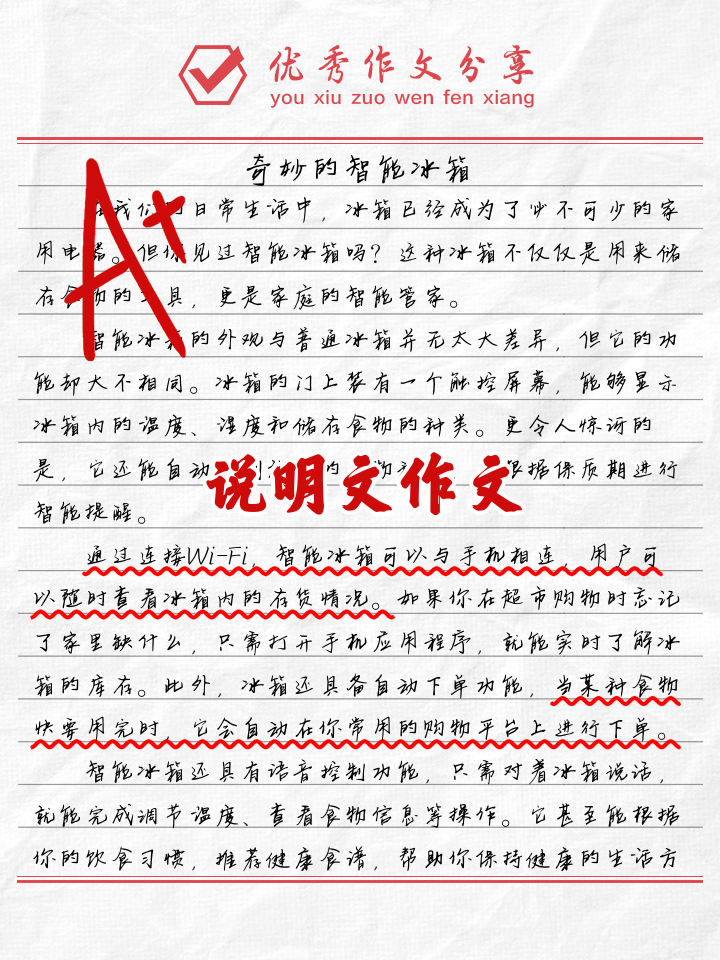 优秀作文分享
you xiu zuo wen fen xiang
奇妙的智能冰箱
A+
我们 日常生活中，冰箱已经成为了必不可少的家
用电器。但你见过智能冰箱吗？这种冰箱不仅仅是用来储
存食物的工具，更是家庭的智能管家。
智能冰箱的外观与普通冰箱并无太大差异，但它的功
能却大不相同。冰箱的门上装有一个触控屏幕，能够显示
冰箱内的温度、湿度和储存食物的种类。更令人惊讶的
是，它还能自动 的 根据保质期进行
说明文作文
智能提醒。
通过连接Wi-Fi，智能冰箱可以与手机相连，用户可
以随时查看冰箱内的存货情况。如果你在超市购物时忘记
了家里缺什么，只需打开手机应用程序，就能实时了解冰
箱的库存。此外，冰箱还具备自动下单功能，当某种食物
快要用完时，它会自动在你常用的购物平台上进行下单。
智能冰箱还具有语音控制功能，只需对着冰箱说话，
就能完成调节温度、查看食物信息等操作。它甚至能根据
你的饮食习惯，推荐健康食谱，帮助你保持健康的生活方